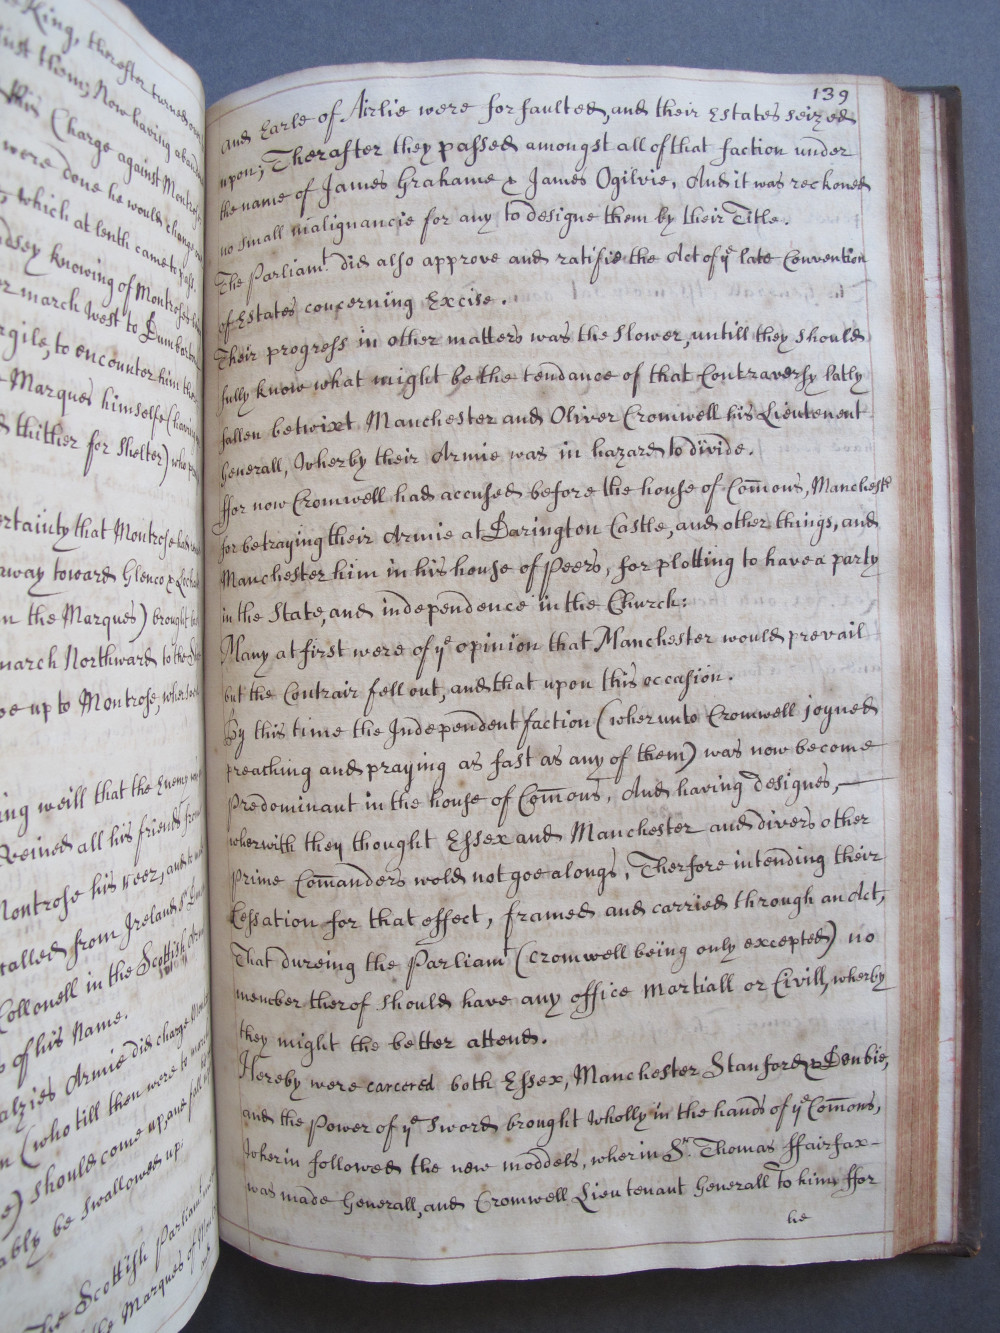 King, therafter turned
just them; Now having
this Charge against Montrose
were done he would change
which at lenth came to pass.
dsey knowing of Montrose
march West to Dumbarton
rgile, to encounter him
Marques himselfe (having
thither for shelter) who
ertainty that Montrose
away toward Glenco &
n the Marques) brought
march Northward to the
up to Montrose, wher
ing weill that the Enemy
all his friends from
Montrose his
called from Ireland
Collonell in the Scottish
of his Name.
alzies Armie did charge
(who till then were to
e) should come up, ane
ably be swallowed up
The Scottish Parliament
the Marques of
139
and Earle of Airlie were forfaulted, and their Estates seized
upon; Therafter they passed amongst all of that faction under
the name of James Grahame & James Ogilvie, And it was reckoned
no small malignancie for any to designe them by their Title.
The Parliamt. did also approve and ratifie the Act of ye late Convention
of Estates concerning Excise.
Their progress in other matters was the slower, untill they should
fully know what might be the tendance of that Contraversy latly
fallen betwixt Manchester and Oliver Cromwell his Lieutenent
Generall, Wherby their Armie was in hazard to divide.
ffor now Cromwell had accused before the house of Com̄ons, Manchester
for betraying their Armie at Darington Castle, and other things, and
Manchester him in his house of Peers, for plotting to have a party
in the State, and independence in the Church:
Many at first were of ye opinion that Manchester would prevail
but the Contrair fell out, and that upon this occasion.
By this time the Independent faction (wherunto Cromwell joyned
preaching and praying as fast as any of them) was now become
predominant in the house of Com̄ons, And having designes,—
wherwith they thought Essex and Manchester and divers other
prime Com̄anders wold not goe alongs, Therfore intending their
Cessation for that effect, framed and carried through an Act,
That dureing the Parliamt (Cromwell being only excepted) no
member therof should have any office Martiall or Civill, wherby
they might the better attend.
Hereby were carcered both Essex, Manchester Stanford & Denbie,
and the Power of ye Sword brought Wholly in the hands of ye Com̄ons,
Wherin followed the new moddels, wherin Sr. Thomas ffairfax—
was made Generall, and Cromwell Lieutenant Generall to him, ffor
he